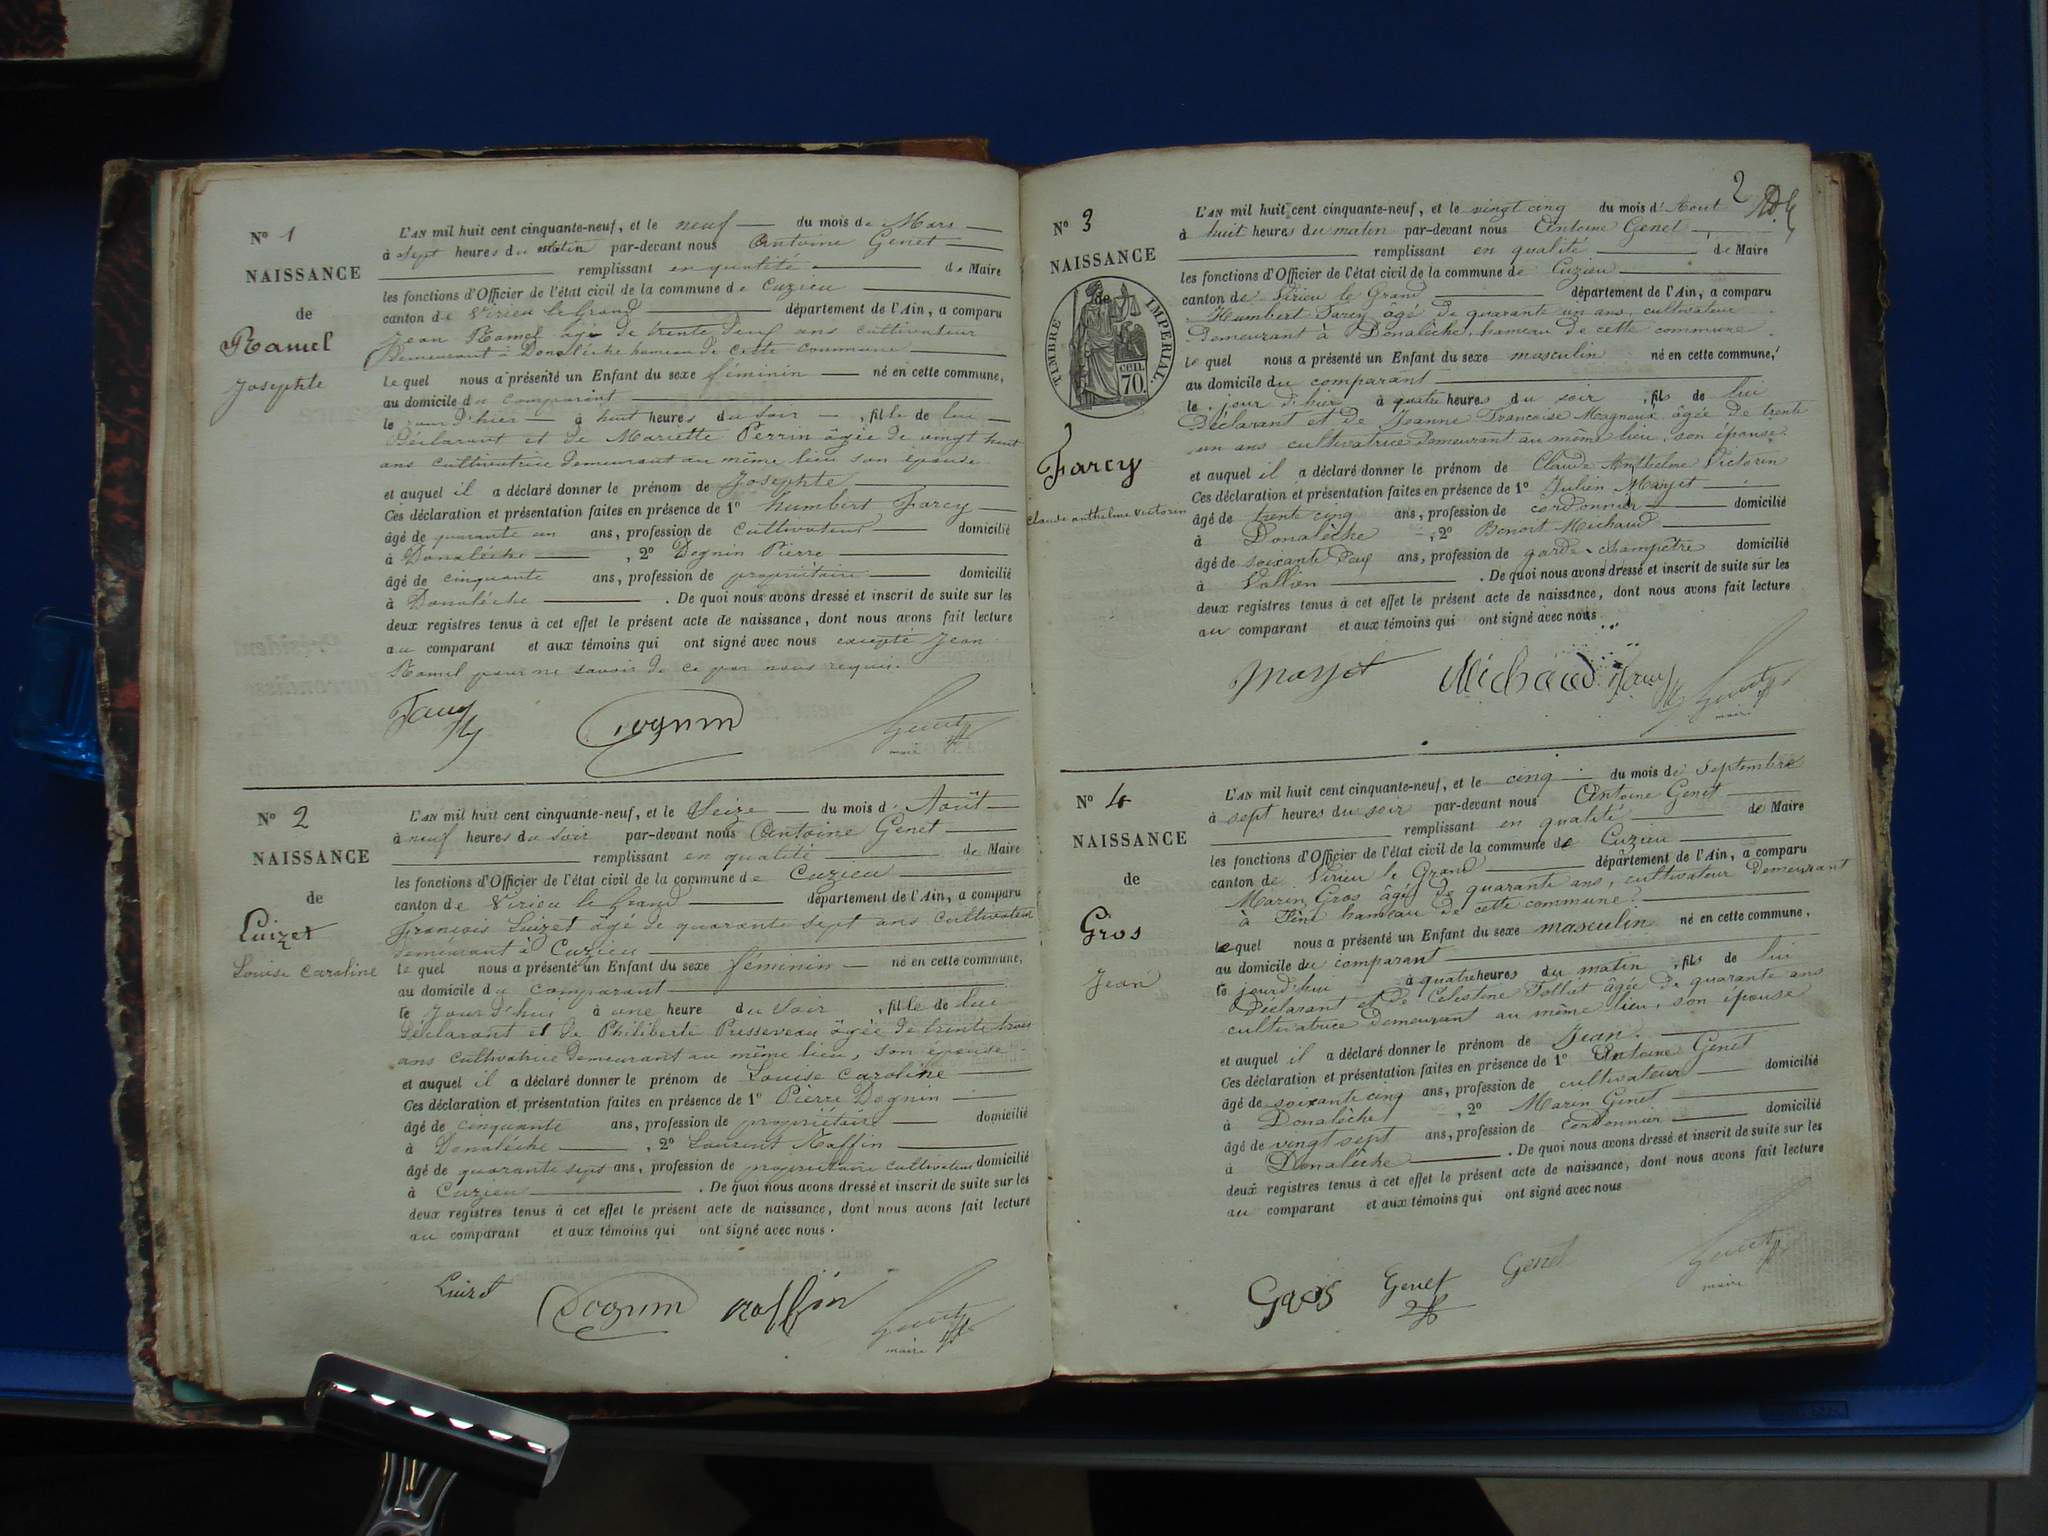 N° 1
NAISSANCE
de
Ramel
Josephte
L'AN mil huit cent cinquante-neuf, et le neuf du mois de Mars
à sept heures du matin par-devant nous Antoine Genet
remplissant en qualité de Maire
les fonctions d'Officier de l'état civil de la commune de Cuzieu
canton de Virieu le Grand département de l'Ain, a comparu
Jean Ramel âgé de trente neuf ans cultivateur
Demeurant à Donalèche hameau de cette commune
le quel nous a présenté un Enfant du sexe féminin né en cette commune,
au domicile du comparant
le jour d'hier à huit heures du soir , fille de lui
Déclarant et de Mariette Perrin âgée de vingt huit
ans cultivatrice demeurant au même lieu son épouse
et auquel il a déclaré donner le prénom de Josephte
Ces déclaration et présentation faites en présence de 1° humbert Farcy
âgé de quarante un ans, profession de cultivateur domicilié
à Donalèche , 2° Dognin Pierre
âgé de cinquante ans, profession de propriétaire domicilié
à Donalèche . De quoi nous avons dressé et inscrit de suite sur les
deux registres tenus à cet effet le présent acte de naissance, dont nous avons fait lecture
au comparant et aux témoins qui ont signé avec nous excepté Jean
Ramel pour ne savoir de ce par nous requis.
Farcy Dognin Genet
maire
N° 2
NAISSANCE
de
Luizet
Louise Caroline
L'AN mil huit cent cinquante-neuf, et le Seize du mois d'Août
à neuf heures du soir par-devant nous Antoine Genet
remplissant en qualité de Maire
les fonctions d'Officier de l'état civil de la commune de Cuzieu
canton de Virieu le Grand département de l'Ain, a comparu
François Luizet âgé de quarante sept ans cultivateur
demeurant à Cuzieu
le quel nous a présenté un Enfant du sexe féminin né en cette commune,
au domicile du comparant
le jour d'hui à une heure du soir , fille de lui
Déclarant et de Philiberte Presseveau âgée de trente trois
ans cultivatrice demeurant au même lieu, son épouse
et auquel il a déclaré donner le prénom de Louise Caroline
Ces déclaration et présentation faites en présence de 1° Pierre Dognin
âgé de cinquante ans, profession de propriétaire domicilié
à Donalèche , 2° Laurent Raffin
âgé de quarante sept ans, profession de propriétaire cultivateur domicilié
à Cuzieu . De quoi nous avons dressé et inscrit de suite sur les
deux registres tenus à cet effet le présent acte de naissance, dont nous avons fait lecture
au comparant et aux témoins qui ont signé avec nous.
Luizet Dognin Raffin Genet
maire
2
N° 3
NAISSANCE
de
TIMBRE IMPERIAL.
CEN.
70.
Farcy
Claude anthelme victorin
L'AN mil huit cent cinquante-neuf, et le vingt cinq du mois d'Aout
à huit heures du matin par-devant nous Antoine Genet
remplissant en qualité de Maire
les fonctions d'Officier de l'état civil de la commune de Cuzieu
canton de Virieu le Grand département de l'Ain, a comparu
Humbert Farcy âgé de quarante un ans, cultivateur
Demeurant à Donalèche, hameau de cette commune
le quel nous a présenté un Enfant du sexe masculin né en cette commune,
au domicile du comparant
le jour d'hier à quatre heures du soir , fils de lui
Déclarant et de Jeanne Francoise Magneux âgée de trente
un ans cultivatrice demeurant au même lieu, son épouse.
et auquel il a déclaré donner le prénom de Claude Anthelme Victorin
Ces déclaration et présentation faites en présence de 1° Julien Mayet
âgé de trente cinq ans, profession de cordonnier domicilié
à Donalèche , 2° Benoit Michaud
âgé de soixante neuf ans, profession de garde champêtre domicilié
à Vollien . De quoi nous avons dressé et inscrit de suite sur les
deux registres tenus à cet effet le présent acte de naissance, dont nous avons fait lecture
au comparant et aux témoins qui ont signé avec nous
Mayet Michaud Farcy Genet
maire
N° 4
NAISSANCE
de
Gros
Jean
L'AN mil huit cent cinquante-neuf, et le cinq du mois de Septembre
à sept heures du soir par-devant nous Antoine Genet
remplissant en qualité de Maire
les fonctions d'Officier de l'état civil de la commune de Cuzieu
canton de Virieu le Grand département de l'Ain, a comparu
Marin Gros âgé de quarante ans, cultivateur Demeurant
à hameau de cette commune
lequel nous a présenté un Enfant du sexe masculin né en cette commune,
au domicile du comparant
le jourd'hui à quatre heures du matin , fils de lui
Déclarant et de Célestine Tollut âgée de quarante ans
cultivatrice demeurant au même lieu, son épouse
et auquel il a déclaré donner le prénom de Jean.
Ces déclaration et présentation faites en présence de 1° Antoine Genet
âgé de soixante cinq ans, profession de cultivateur domicilié
à Donalèche , 2° Marin Genet
âgé de vingt sept ans, profession de cordonnier domicilié
à Donalèche . De quoi nous avons dressé et inscrit de suite sur les
deux registres tenus à cet effet le présent acte de naissance, dont nous avons fait lecture
au comparant et aux témoins qui ont signé avec nous
Gros Genet Genet Genet
maire